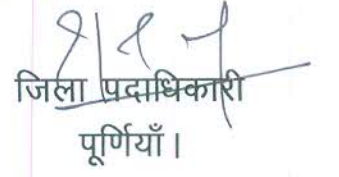 जिला पदाधिकारी
पूर्णियाँ।